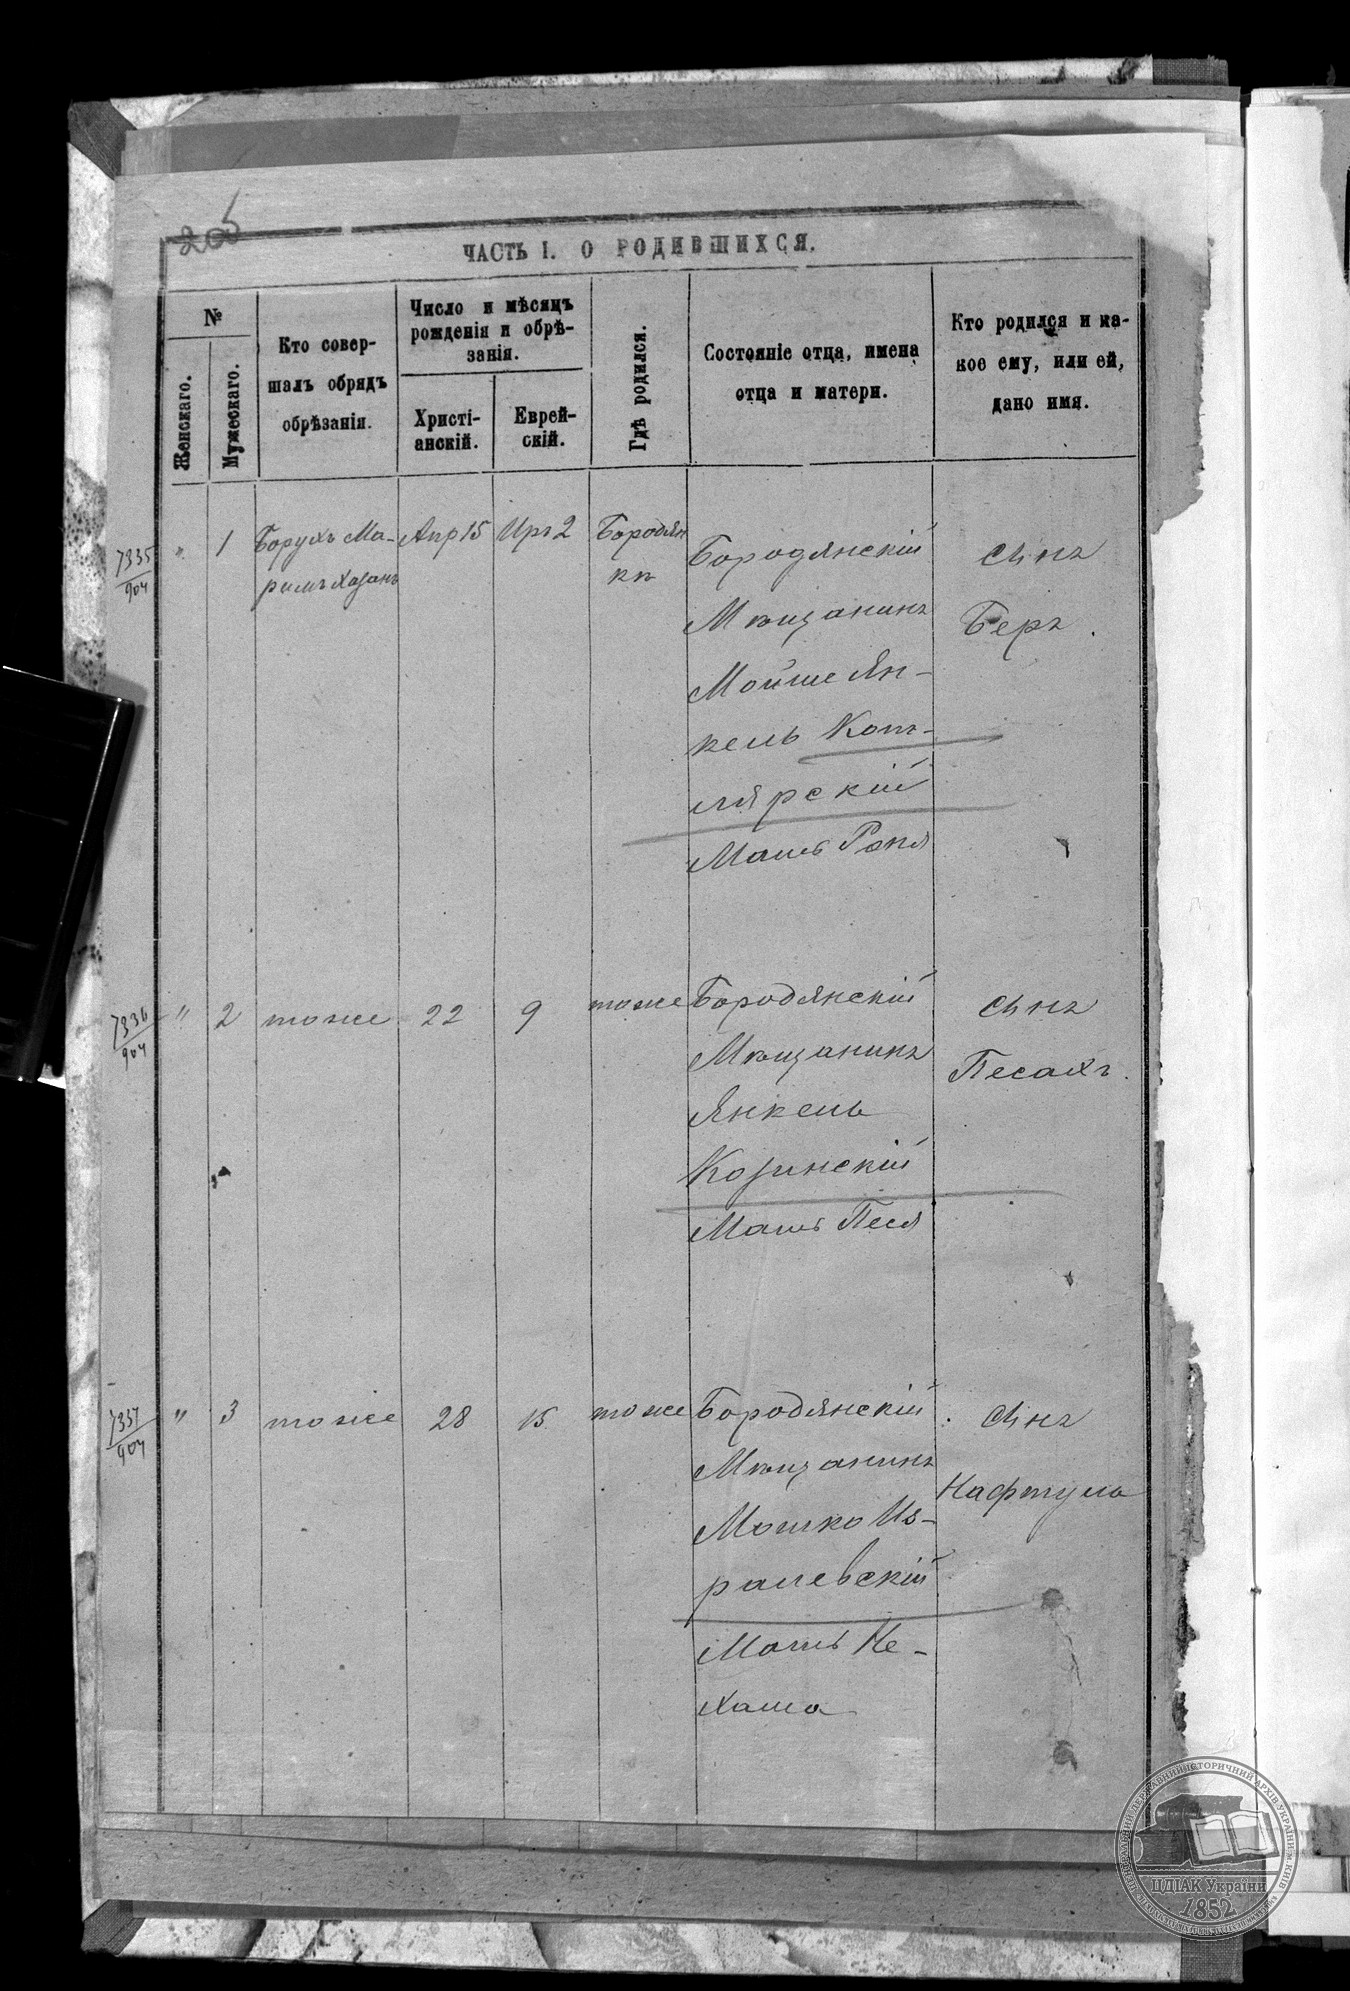 205
ЧАСТЬ I. О РОДИВШИХСЯ.
№
Женскаго.
Мужескаго.
Кто совер-
шалъ обрядъ
обрѣзанія.
Число и мѣсяцъ
рожденія и обрѣ-
занія.
Христі-
анскій.
Еврей-
скій.
Гдѣ родился.
Состояніе отца, имена
отца и матери.
Кто родился и ка-
кое ему, или ей,
дано имя.
7335
904
" 1
Борухъ Ма-
римъ Хазанъ
Апр 15
Иръ 2
Бородян
кѣ
Бородянскій
Мѣщанинъ
Мойше Ян-
кель Кот-
лярскій
Мать Рокл
Сынъ
Беръ.
7336
904
" 2 тоже 22 9 тоже
Бородянскій
Мѣщанинъ
Янкель
Козинскій
Мать Песя
Сынъ
Песахъ.
7337
904
" 3 тоже 28 15 тоже
Бородянскій
Мѣщанинъ
Мошко Из-
ралевскій
Мать Не-
хама
Сынъ
Нафтуль
ЦЕНТРАЛЬНИЙ ДЕРЖАВНИЙ ІСТОРИЧНИЙ АРХІВ УКРАЇНИ, М. КИЇВ
ЦДІАК України
1852